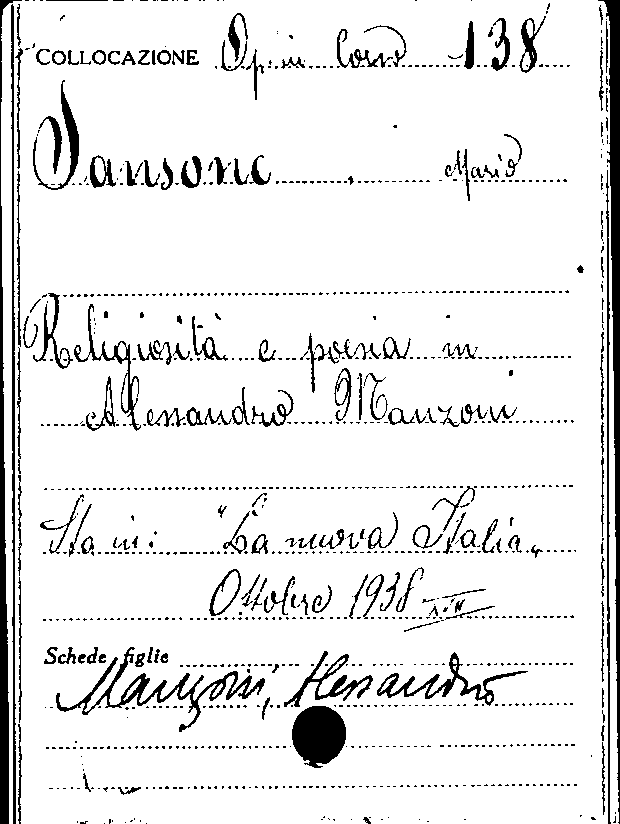 COLLOCAZIONE Op. in Corso 138
Sansone, Mario
Religiosità e poesia in
Alessandro Manzoni
Sta in: "La nuova Italia„
Ottobre 1938 XVI
Schede figlie
Manzoni, Alessandro